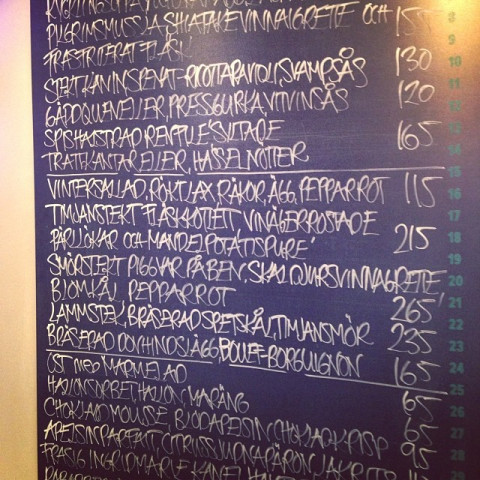 PILGRIMSMUSSLA, SHIITAKEVINNAIGRETTE OCH 155 8
FRASTRITERAT FLÄSK 9
130 10
STEKT KANIN, SPENAT-RICOTTARAVIOLI, SVAMPSÅS 11
GÄDDQUENELLER, PRESSGURKA, VITVINSÅS 120 12
SPISHALSTRAD RENFILÉ SYLTADE 165 13
TRATTKANTARELLER, HASSELNÖTTER 14
15
VINTERSALLAD, RÖKT LAX, RÄKOR, ÄGG, PEPPARROT 115 16
TIMJANSTEKT FLÄSKKOTLETT VINÄGERROSTADE 17
PÄRLLÖKAR OCH MANDELPOTATISPURÉ 215 18
19
SMÖRSTEKT PIGGVAR PÅ BEN, SKALDJURSVINNAIGRETTE 20
BLOMKÅL, PEPPARROT 265 21
LAMMSTEK, BRÄSERAD SPETSKÅL, TIMJANSMÖR 235 22
BRÄSERAD OXHINDSLÄGG, BOUEF-BORGUIGNON 23
165 24
OST MED MARMELAD 25
HALLONSORBET, HALLON, MARÄNG 65 26
CHOKLADMOUSSE, BLODAPELSIN, CHOKLADKRISP 65 27
APELSINPARFAIT, CITRUSSJUDNA PÄRON, LAKRITS 95 28